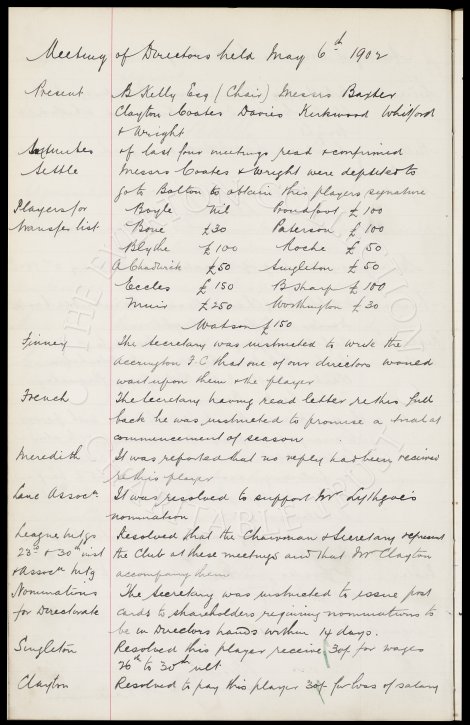 Meeting of Directors held May 6th 1902
Present B Kelly Esq (Chair) Messrs Baxter
Clayton Coates Davies Kirkwood Whitford
& Wright
Minutes of last four meetings read & confirmed
Settle Messrs Coates & Wright were deputed to
go to Bolton to obtain this players signature
Players for Boyle Nil Proudfoot £100
transfer list Bone £30 Paterson £100
Blythe £100 Roche £50
A Chadwick £50 Singleton £50
Eccles £150 B Sharp £100
Muir £250 Worthington £30
Watson £150
Finney The Secretary was instructed to write the
Accrington F C that one of our directors would
wait upon them & the player
French The Secretary having read letter re this full
back he was instructed to promise a trial at
commencement of season
Meredith It was reported that no reply had been received
re this player
Lanc Assocn It was resolved to support Mr Lythgoe's
nomination
League mtgs Resolved that the Chairman & Secretary represent
23rd & 30th inst the Club at these meetings and that Mr Clayton
& Assocn mtg accompany them
Nominations The Secretary was instructed to issue post
for Directorate cards to shareholders requiring nominations to
be in Directors hands within 14 days.
Singleton Resolved this player receive 30/- for wages
26th to 30th ult
Clayton Resolved to pay this player 30/- for loss of salary